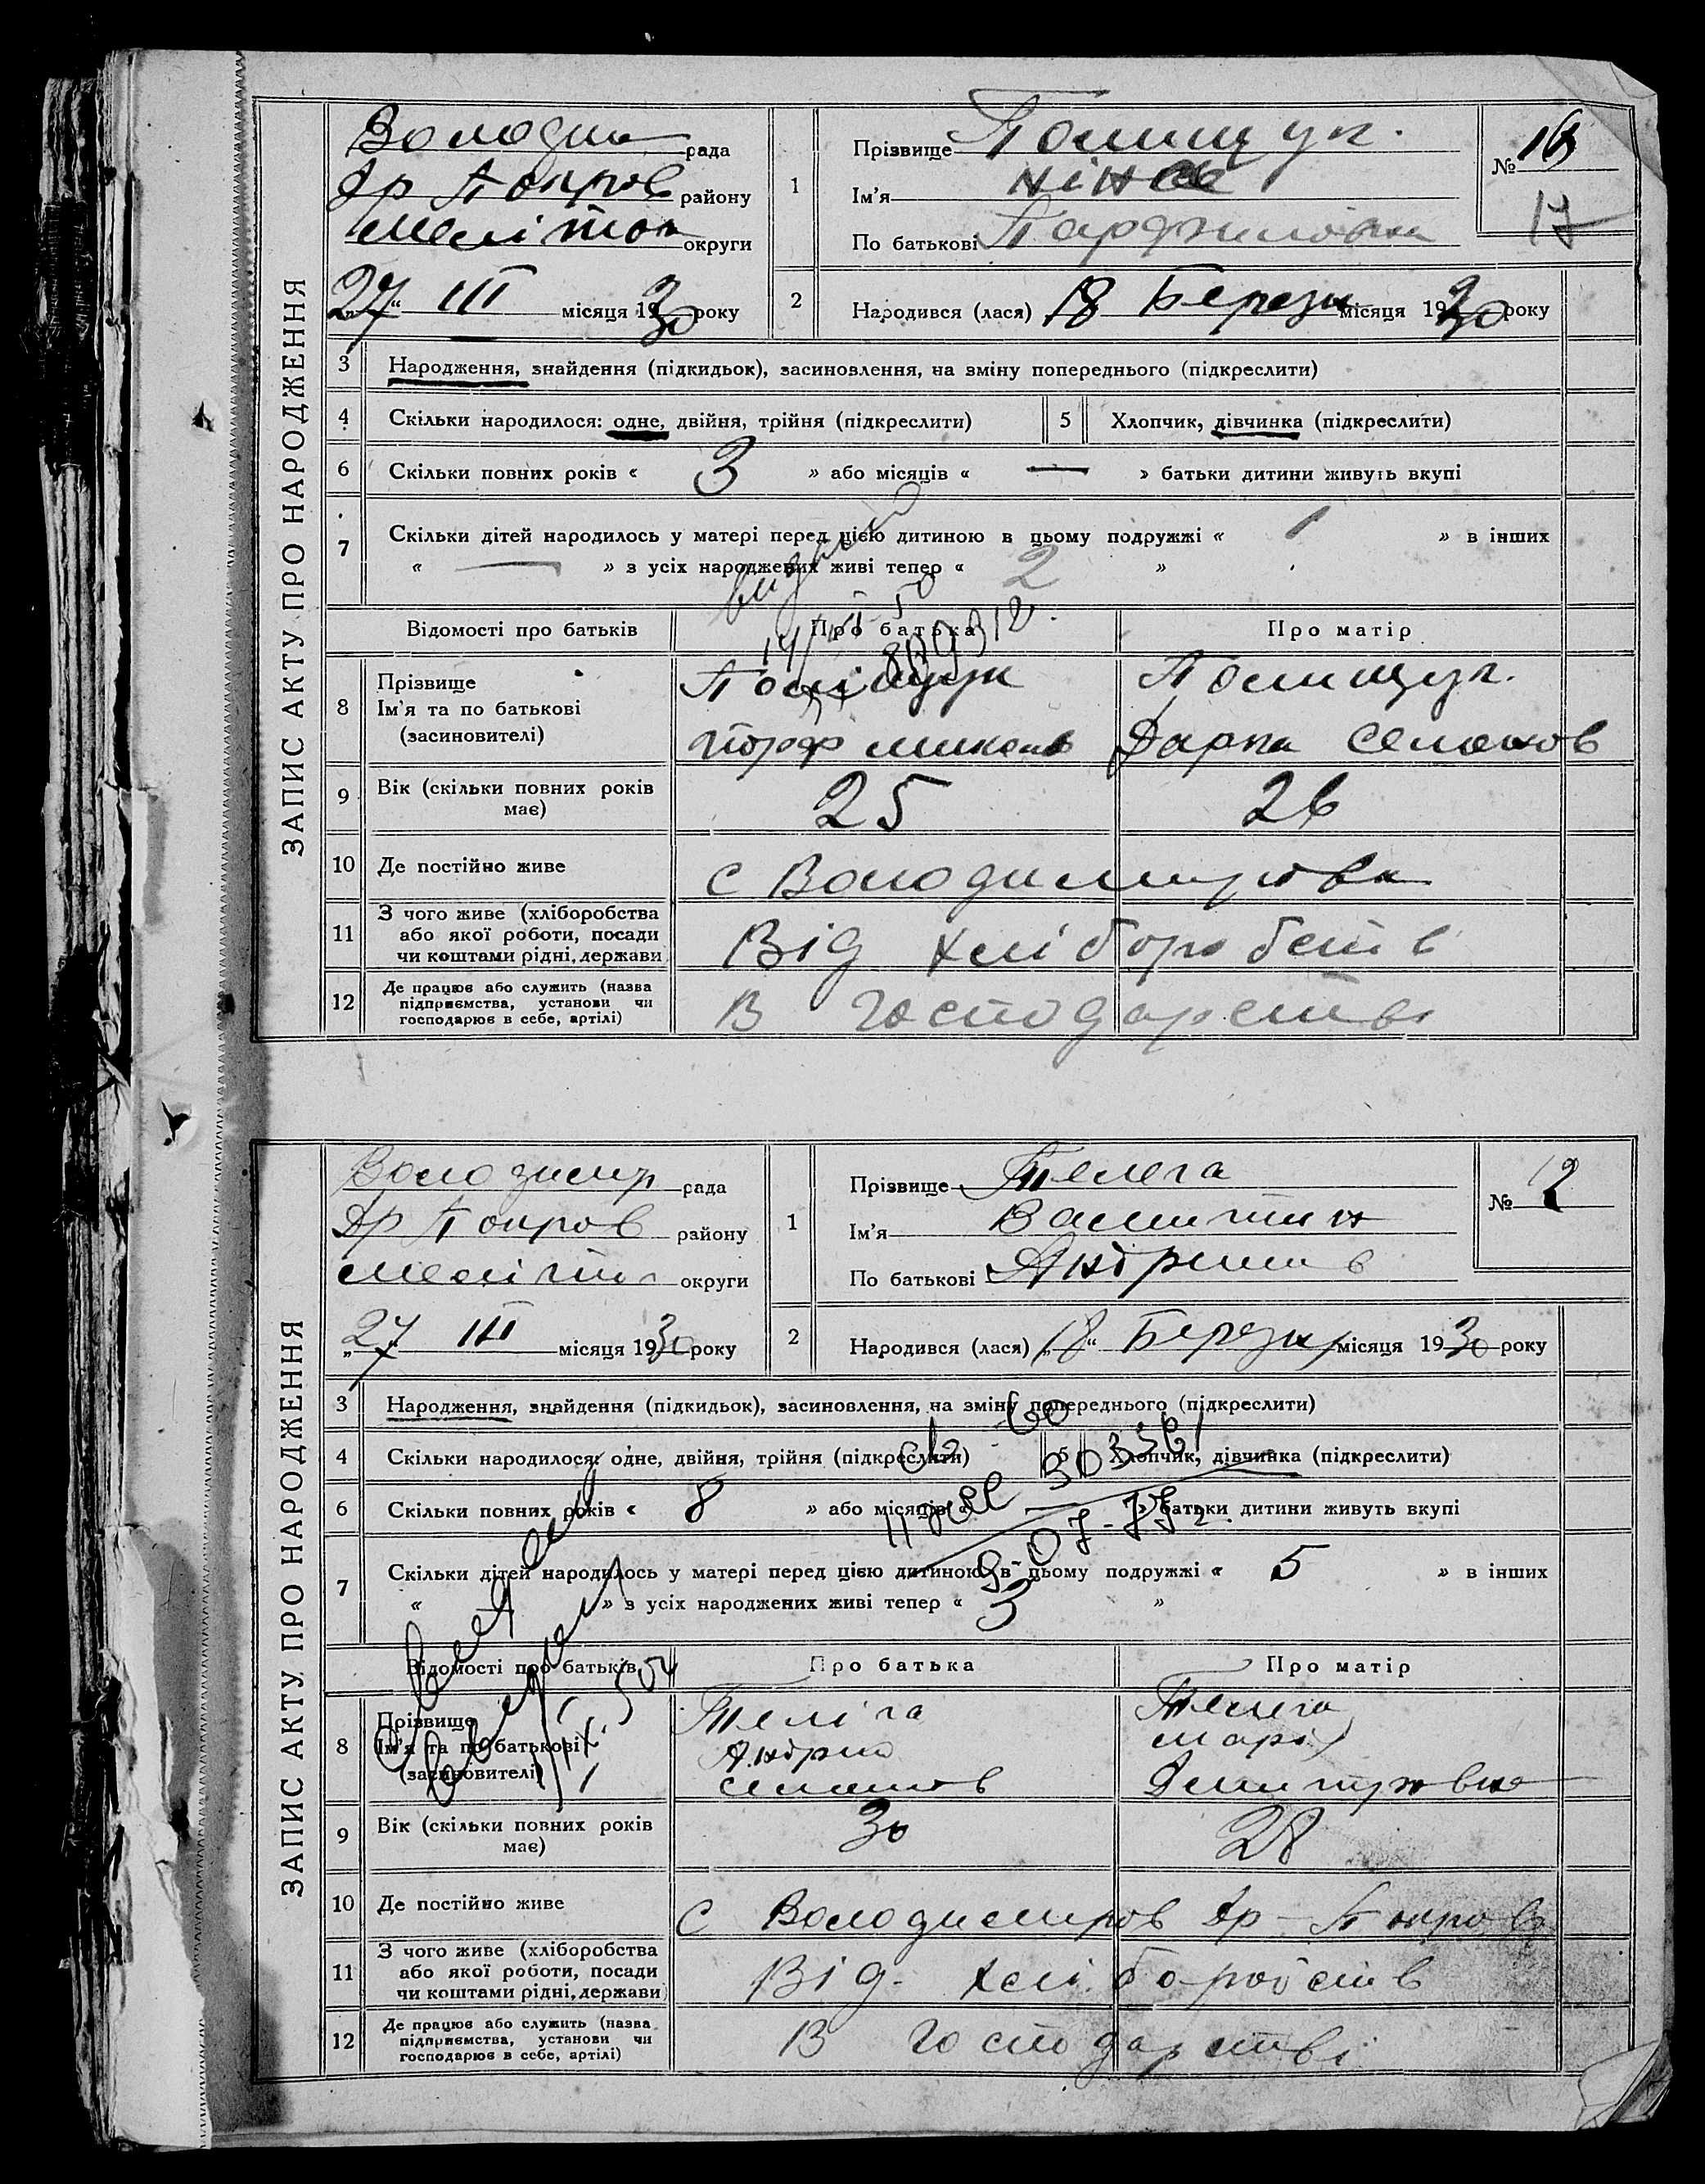 ЗАПИС АКТУ ПРО НАРОДЖЕННЯ
рада
Др Покров району
Меліто округи
„27“ III місяця 1930 року
1
Прізвище Полищук.
Ім'я Ніна
По батькові
№ 16
17
2
Народився (лася) 18 Березн місяця 1930 року
3 Народження, знайдення (підкидьок), засиновлення, на зміну попереднього (підкреслити)
4 Скільки народилося: одне, двійня, трійня (підкреслити) 5 Хлопчик, дівчинка (підкреслити)
6 Скільки повних років « 3 » або місяців « — » батьки дитини живуть вкупі
7 Скільки дітей народилось у матері перед цією дитиною в цьому подружжі « 1 » в інших
« — » з усіх народжених живі тепер « 2 »
Відомості про батьків Про батька Про матір
8 Прізвище
Ім'я та по батькові
(засиновителі)
Поліщук
Полищук.
Дарка Семенов
9 Вік (скільки повних років має) 25 26
10 Де постійно живе с Володимировка
11 З чого живе (хліборобства
або якої роботи, посади
чи коштами рідні, держави
Від хліборобств
12 Де працює або служить (назва
підприємства, установи чи
господарює в себе, артілі)
В господарстві
ЗАПИС АКТУ ПРО НАРОДЖЕННЯ
Володимир рада
Др Покров району
Меліто округи
„27“ III місяця 1930 року
1
Прізвище Телега
Ім'я
По батькові
№ 12
2
Народився (лася) „18“ Березня місяця 1930 року
3 Народження, знайдення (підкидьок), засиновлення, на зміну попереднього (підкреслити)
4 Скільки народилося: одне, двійня, трійня (підкреслити) 5 Хлопчик, дівчинка (підкреслити)
6 Скільки повних років « 8 » або місяців « — » батьки дитини живуть вкупі
7 Скільки дітей народилось у матері перед цією дитиною в цьому подружжі « 5 » в інших
« » з усіх народжених живі тепер « 3 »
Відомості про батьків Про батька Про матір
8 Прізвище
Ім'я та по батькові
(засиновителі)
Теліга
Андрій
Семенов
Телега
Марія
Дмитровна
9 Вік (скільки повних років має) 30 28
10 Де постійно живе с Володимиров Др-Покров
11 З чого живе (хліборобства
або якої роботи, посади
чи коштами рідні, держави
Від хліборобств
12 Де працює або служить (назва
підприємства, установи чи
господарює в себе, артілі)
В господарстві